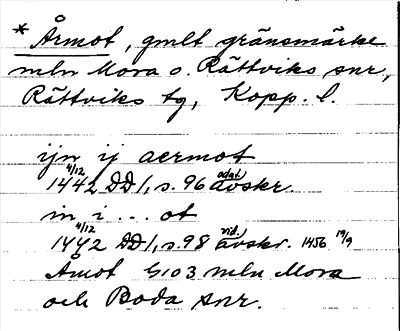 * Årmot, gmlt gränsmärke
mln Mora o. Rättviks snr,
Rättviks tg, Kopp. l.
ijn ij aermot
4/12 odat.
1442 DD 1, s. 96 avskr.
in i ... ot
4/12 vid. 19/9
1442 DD 1, s. 98 avskr. 1456
Åmot G103 mln Mora
och Boda snr.